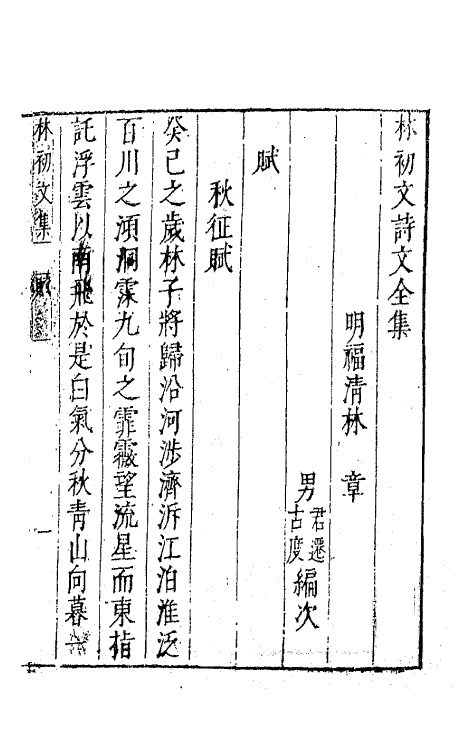 林初文詩文全集
明福清林 章
男 君遷 古度 編次
賦
秋征賦
癸巳之歲林子將歸沿河涉濟泝江泊淮泛
百川之澒洞霂九旬之霏霰望流星而東指
託浮雲以南飛於是白氣分秋青山向暮
林初文集 賦 一